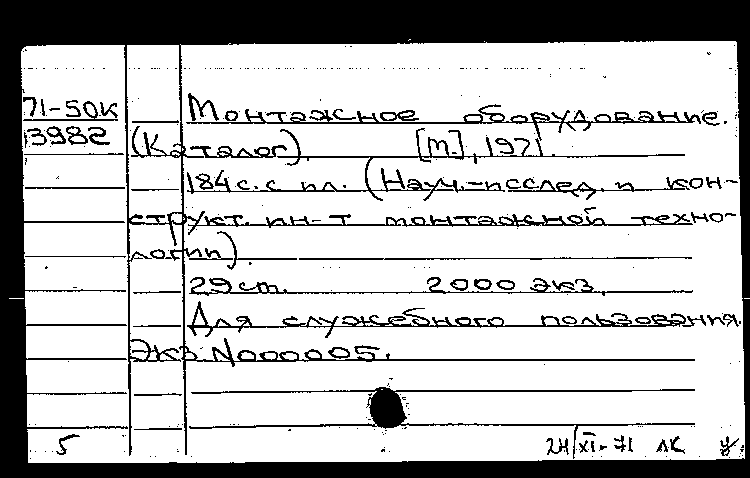 71-50к
13982
Монтажное оборудование.
(Каталог). [М], 1971.
184 с. с ил. (Науч.-исслед. и кон-
структ. ин-т монтажной техно-
логии).
29 ст. 2000 экз.
Для служебного пользования.
Экз. N000005.
5 24/XI-71 ЛК